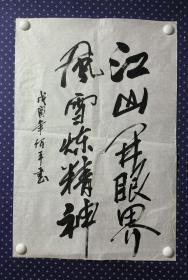 江山开眼界
风雪炼精神
戊寅年
书